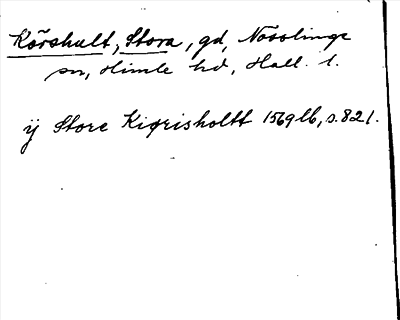 Körshult, Stora, gd, Nösslinge
sn, Himle hd, Hall. l.
ij Store Kiørisholtt 1569 lb, s. 821.